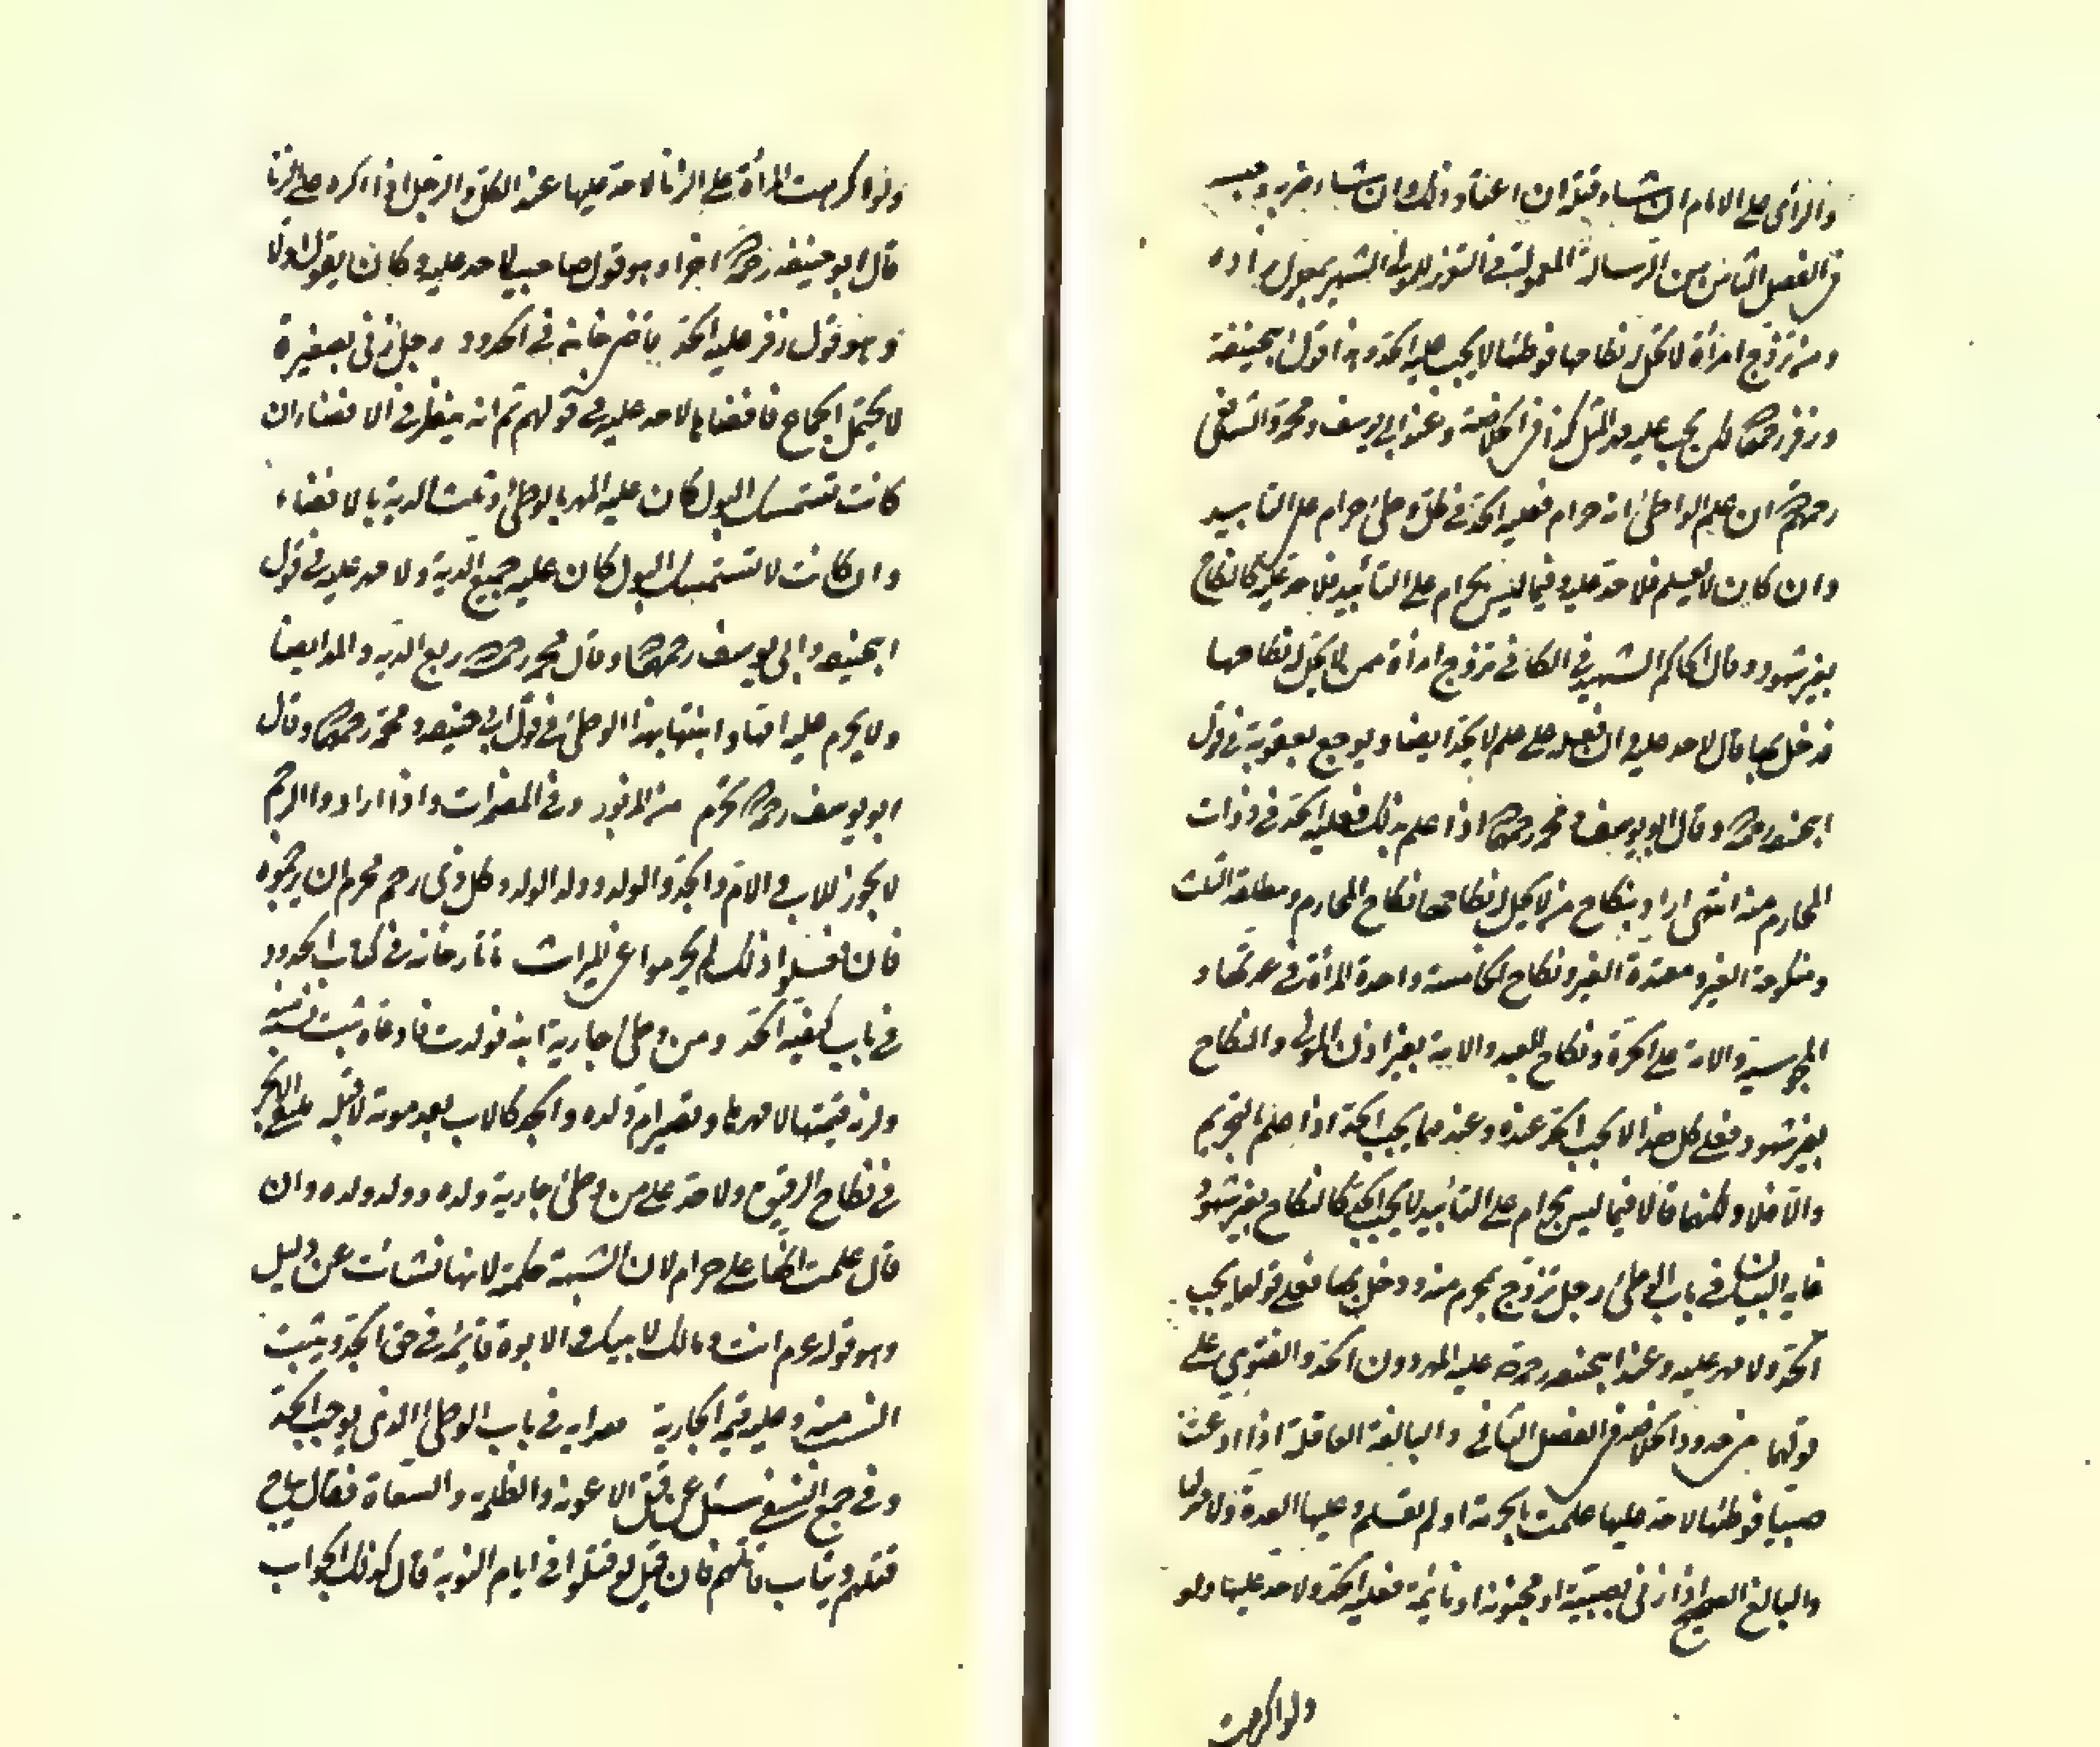 والرأى على الامام ان شاء قتله ان اعتاد ذلك وان شاء ضربه وحبسه
فى الفصل الثامن من الرسالة المعمولة فى التعزير للمولى الشهير بمعلول زاده
ومن تزوج امرأة لا تحل له نكاحها فوطئها لا يجب عليه الحد وهذا قول ابيحنيفة
وزفر رحمهما الله لكن يجب عليه مهر المثل كذا فى الخلاصة وعند ابى يوسف ومحمد والشافعى
رحمهم الله ان علم الواطئ انه حرام فعليه الحد فى كل وطئ حرام على التأبيد
وان كان لا يعلم فلا حد عليه وفيما ليس بحرام على التأبيد فلا حد عليه كالنكاح
بغير شهود وقال الحاكم الشهيد فى الكافى تزوج امرأة ممن لا يحل له نكاحها
فدخل بها قال لا حد عليه وان فعله على علم لا يحد ايضا ويوجع بعقوبة فى قول
ابيحنيفه رحمه الله وقال ابو يوسف ومحمد رحمهما الله اذا علم بذلك فعليه الحد فى ذوات
المحارم منه انتهى اراد بنكاح من لا يحل له نكاحها نكاح المحارم ومطلقة الثلث
ومنكوحة الغير ومعتدة الغير ونكاح الخامسة واحدة المرأة فى عدتها و
المجوسية والامة على الحرة ونكاح العبد والامة بغير اذن المولى والنكاح
بغير شهود ففى كل هذا لا يجب الحد عنده وعندهما يجب الحد اذا علم بالتحريم
والا فلا ولكنهما قالا فيما ليس بحرام على التأبيد لا يجب الحد كالنكاح بغير شهود
غاية البيان فى باب الوطئ رجل تزوج بمحرم منه ودخل بها فعلى قولهما يجب
الحد ولا مهر عليه وعند ابيحنيفه رحمه الله عليه المهر دون الحد والفتوى على
قولهما من حدود الخلاصه فى الفصل الثانى والبالغة العاقلة اذا ادعت
صبيا فوطئها لا حد عليها علمت بالحرمة او لم تعلم وعليها العدة ولا مهر لها
والبالغ الصحيح اذا زنى بصبية او مجنونة او نائمة فعليه الحد ولا حد عليها ولو
ولو اكرهت
ولو اكرهت المرأة على الزنا لا حد عليها عند الكل والرجل اذا اكره على الزنا
قال ابو حنيفه رحمه الله اخرا وهو قول صاحبيه لا حد عليه وكان يقول اولا
وهو قول زفر عليه الحد قاضى خانه فى الحدود رجل زنى بصغيرة
لا يحتمل الجماع فافضاها لا حد عليه فى قولهم ثم انه ينظر فى الافضاء ان
كانت تستمسك البول كان عليه المهر بالوطئ وثلث الدية بالافضاء
وان كانت لا تستمسك البول كان عليه جميع الدية ولا مهر عليه فى قول
ابيحنيفه وابى يوسف رحمهما الله وقال محمد رحمه الله ربع الدية والمهر ايضا
ولا يحرم عليه امها وابنتها بهذا الوطئ فى قول ابى حنيفه ومحمد رحمهما الله وقال
ابو يوسف رحمه الله تحرم من المزبور وفى المضمرات واذا ارادوا الرجم
لا يجوز للاب والام والجد والولد وولد الولد وكل ذى رحم محرم ان يرجموه
فان فعلوا ذلك لم يحرموا عن الميراث تاتارخانه فى كتاب الحدود
فى باب كيفية الحد ومن وطئ جارية ابنه فولدت فادعاه ثبت نسبه منه
ولزمه قيمتها لا مهرها وتصير ام ولده والجد كالاب بعد موته لا قبله ملتقى الابحر
فى نكاح الرقيق ولا حد على من وطئ جارية ولده وولد ولده وان
قال علمت انها على حرام لان الشبهة حكمية لانها نشات عن دليل
وهو قوله عم انت ومالك لابيك والابوة قائمة فى حق الجد ويثبت
النسب منه وعليه قيمة الجارية هدايه فى باب الوطئ الذى يوجب الحد
وفى جمع النسفى سئل عن قتل الاعونه والظلمه والسعاة فقال يباح
قتلهم ويثاب قاتلهم فان قيل لو قتلوا فى ايام التوبة قال كذلك الجواب